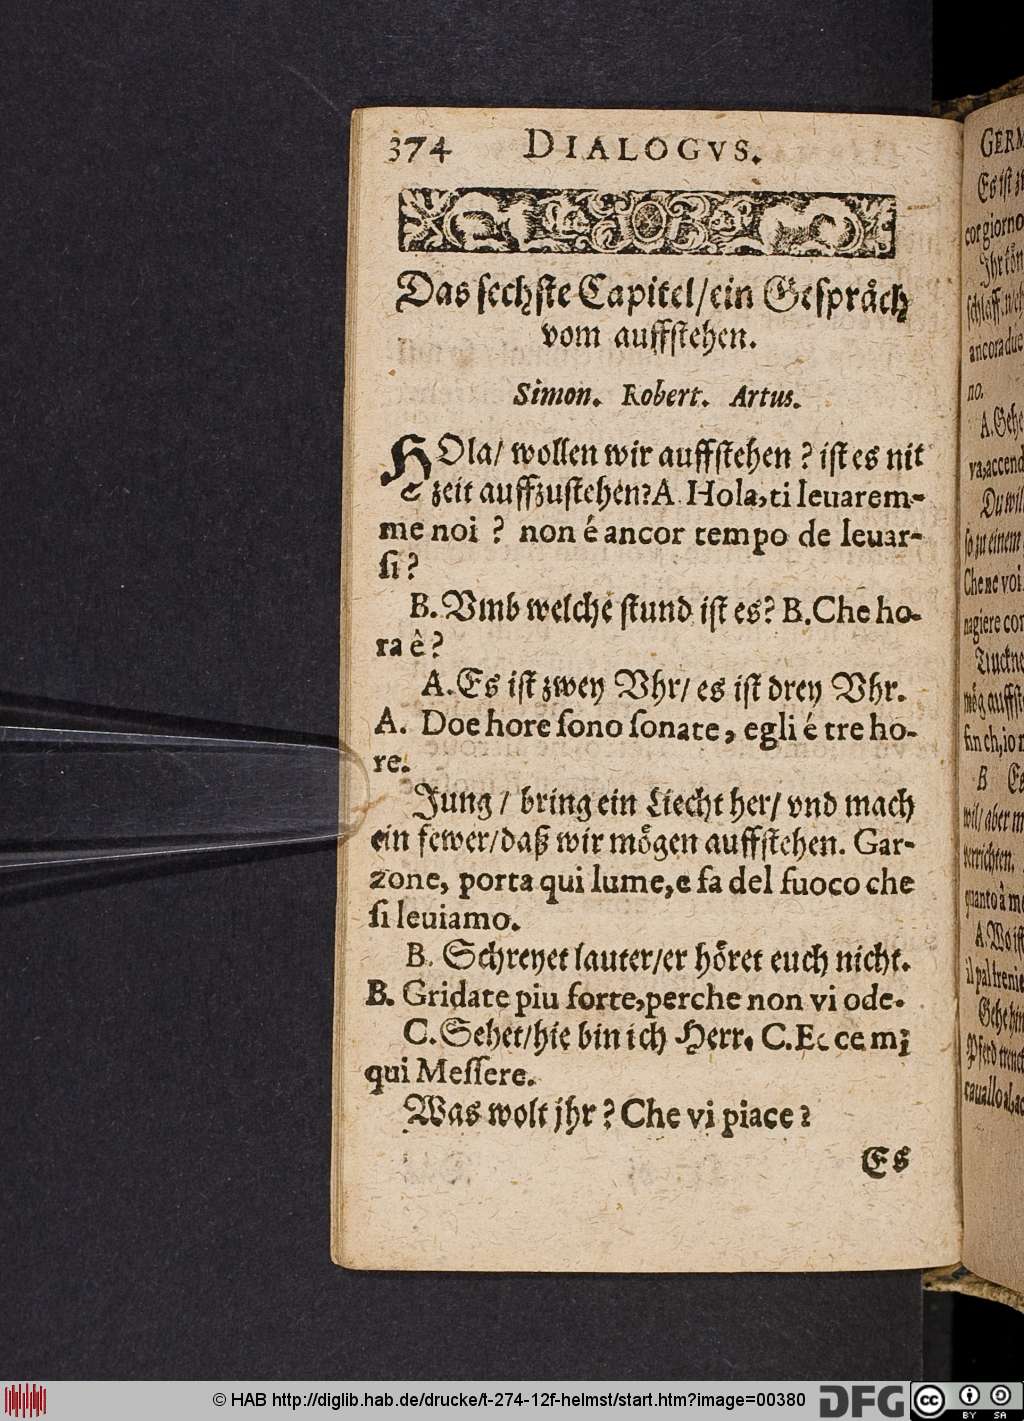 374 DIALOGVS.
Das sechste Capitel/ein Gespräch
vom auffstehen.
Simon. Robert. Artus.
HOla/ wollen wir auffstehen ? ist es nit
zeit auffzustehen? A Hola, ti leuarem-
me noi ? non é ancor tempo de leuar-
si ?
B. Vmb welche stund ist es? B. Che ho-
ra ê ?
A. Es ist zwey Vhr/ es ist drey Vhr.
A. Doe hore sono sonate, egli é tre ho-
re.
Jung / bring ein Liecht her/ vnd mach
ein fewer/daß wir mögen auffstehen. Gar-
zone, porta qui lume, e fa del fuoco che
si leuiamo.
B. Schreyet lauter/er höret euch nicht.
B. Gridate piu forte, perche non vi ode.
C. Sehet/hie bin ich Herr. C. Ecce mi
qui Messere.
Was wolt jhr ? Che vi piace ?
Es
GERM
Es ist
cor giorno
Jhr kön
ancora due
no.
A. Gehe
va, accend
Du wil
so zu einem
Che ne voi
nagiere con
Truckne
mög auffst
B Es
wil/ aber m
verrichten.
quanto à me
A. Wo ist
Gehe hin
Pferd
cauallo al
© HAB http://diglib.hab.de/drucke/t-274-12f-helmst/start.htm?image=00380
DFG
cc BY SA